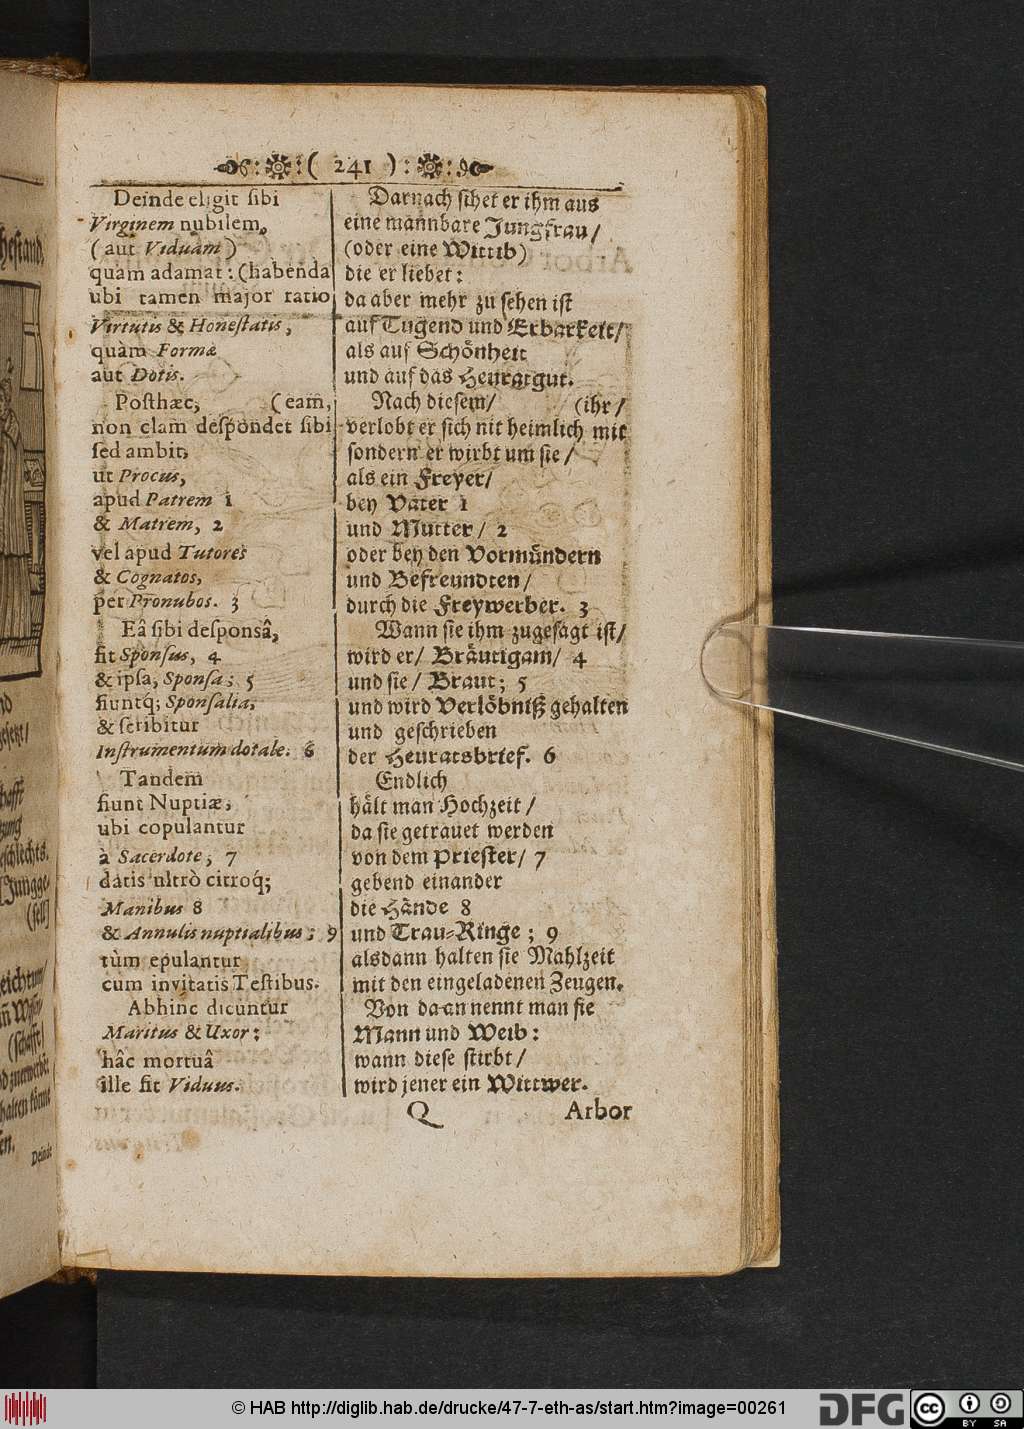 ( 241 )
Deinde eligit sibi
Virginem nubilem,
(aut Viduam)
quàm adamat: (habenda
ubi tamen major ratio
Virtutis & Honestatis,
quàm Formæ
aut Dotis.
Posthæc, (eam,
non clam despondet sibi
sed ambit,
ut Procus,
apud Patrem 1
& Matrem, 2
vel apud Tutores
& Cognatos,
per Pronubos. 3
Eâ sibi desponsâ,
fit Sponsus, 4
& ipsa, Sponsa; 5
fiuntq́; Sponsalia,
& scribitur
Instrumentum dotale. 6
Tandem
fiunt Nuptiæ,
ubi copulantur
à Sacerdote, 7
datis ultrò citroq́;
Manibus 8
& Annulis nuptialibus; 9
tùm epulantur
cum invitatis Testibus.
Abhinc dicuntur
Maritus & Uxor:
hâc mortuâ
ille fit Viduus.
Darnach sihet er ihm aus
eine mannbare Jungfrau/
(oder eine Wittib)
die er liebet:
da aber mehr zu sehen ist
auf Tugend und Erbarkeit/
als auf Schönheit
und auf das Heuratgut.
Nach diesem/ (ihr/
verlobt er sich nit heimlich mit
sondern er wirbt um sie/
als ein Freyer/
bey Vater 1
und Mutter/ 2
oder bey den Vormündern
und Befreundten/
durch die Freywerber. 3
Wann sie ihm zugesagt ist/
wird er/ Bräutigam/ 4
und sie/ Braut; 5
und wird Verlöbniß gehalten
und geschrieben
der Heuratsbrief. 6
Endlich
hält man Hochzeit/
da sie getrauet werden
von dem Priester/ 7
gebend einander
die Hände 8
und Trau-Ringe; 9
alsdann halten sie Mahlzeit
mit den eingeladenen Zeugen.
Von da an nennt man sie
Mann und Weib:
wann diese stirbt/
wird jener ein Wittwer.
Q Arbor
Deinde
© HAB http://diglib.hab.de/drucke/47-7-eth-as/start.htm?image=00261
DFG
cc
BY SA